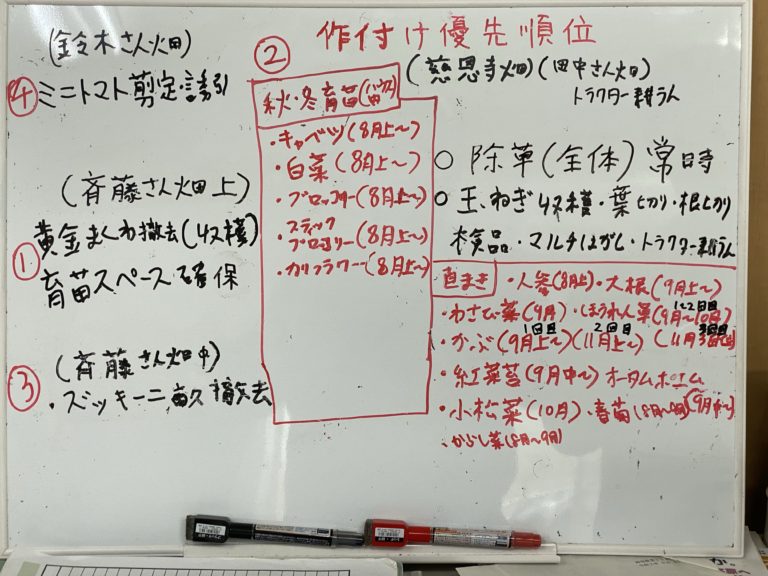 作付け優先順位
(鈴木さん畑)
④ミニトマト剪定・誘引
(斉藤さん畑上)
①黄金まくわ撤去(収穫)
育苗スペース確保
③(斉藤さん畑中)
・ズッキーニ畝撤去
②
秋・冬育苗
・キャベツ(8月上~)
・白菜(8月上~)
・ブロッコリー(8月上~)
・スティックブロッコリー(8月上~)
・カリフラワー(8月上~)
(慈恩寺畑)(田中さん畑)
トラクター耕うん
○除草(全体)常時
○玉ねぎ収穫・葉切り・根切り
検品・マルチはがし・トラクター耕うん
直まき
・人参(8月上)・大根(9月上~)
・わさび菜(9月)・ほうれん草(9月~10月)
1回目 2回目 3回目
・かぶ(9月上~)(11月上~)(11月
・紅菜苔(9月中~)オータムポエム
・小松菜(10月)・春菊(9月中~)
・からし菜(8月~9月)